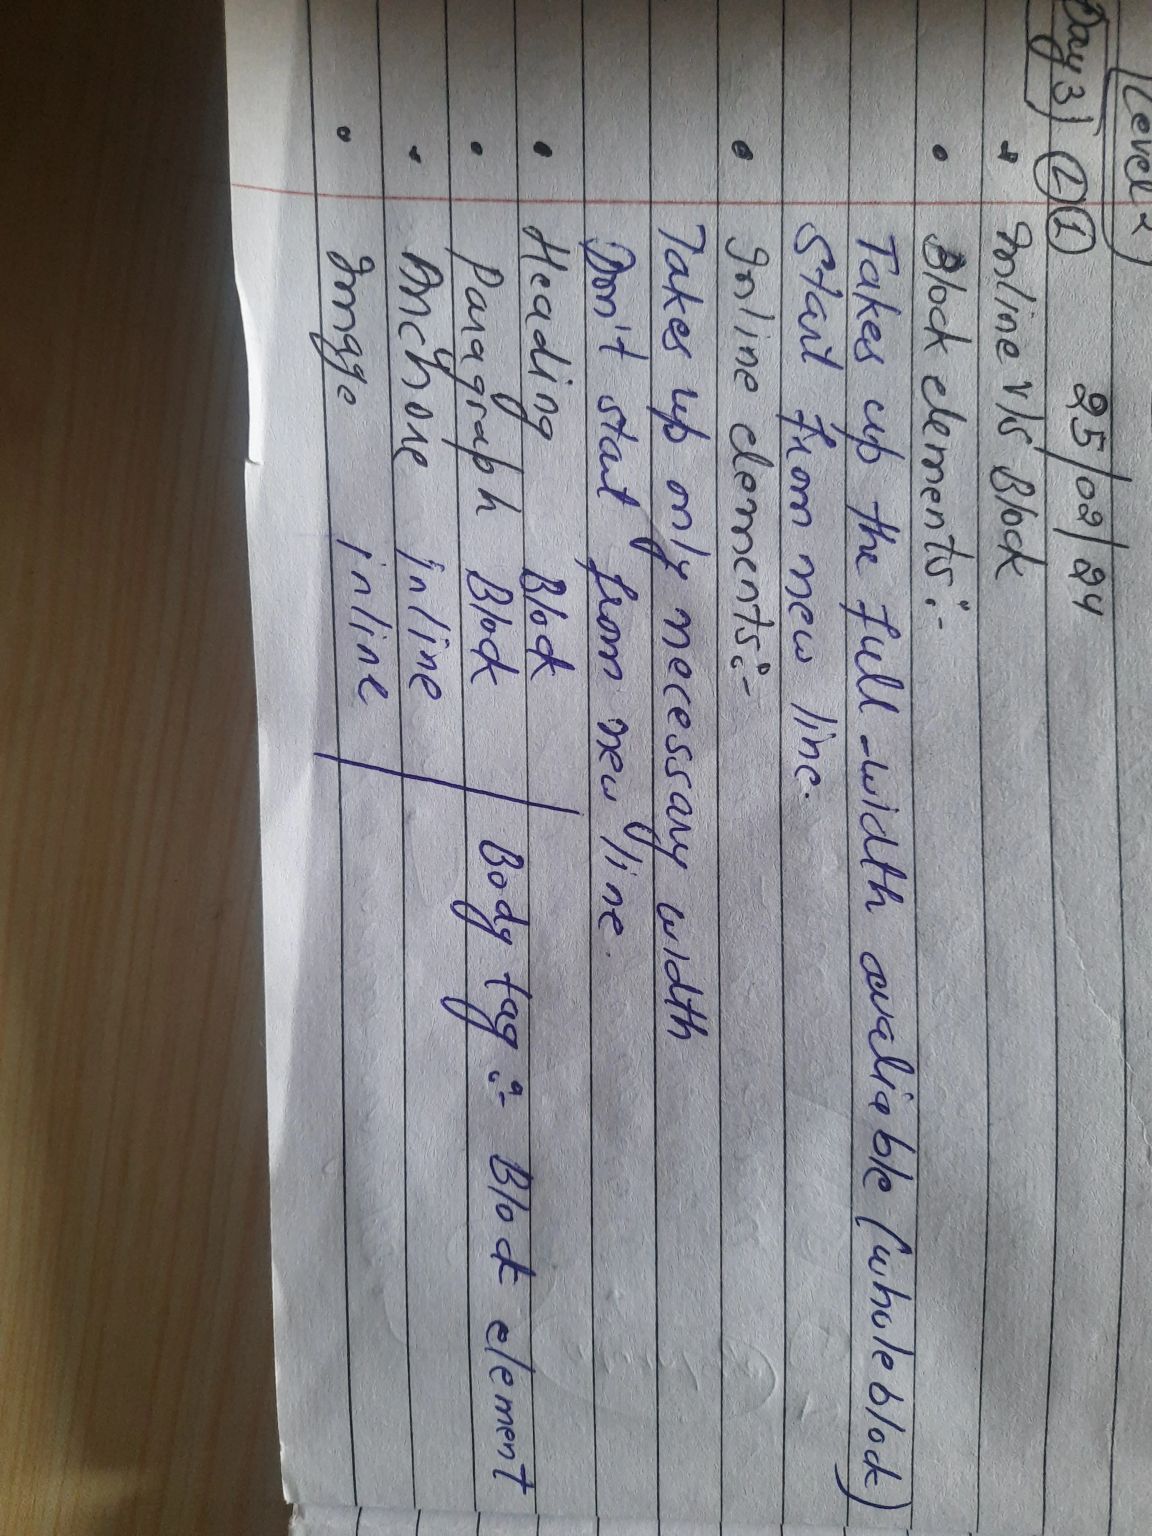 Level 2
Day 3 L 1 25/02/24
Inline V/S Block
Block elements :-
Takes up the full-width avaliable (whole block)
Start from new line.
Inline elements :-
Takes up only necessary width
Don't start from new line.
Heading Block
Paragraph Block Body tag :- Block element
Anchore inline
Imgge inline